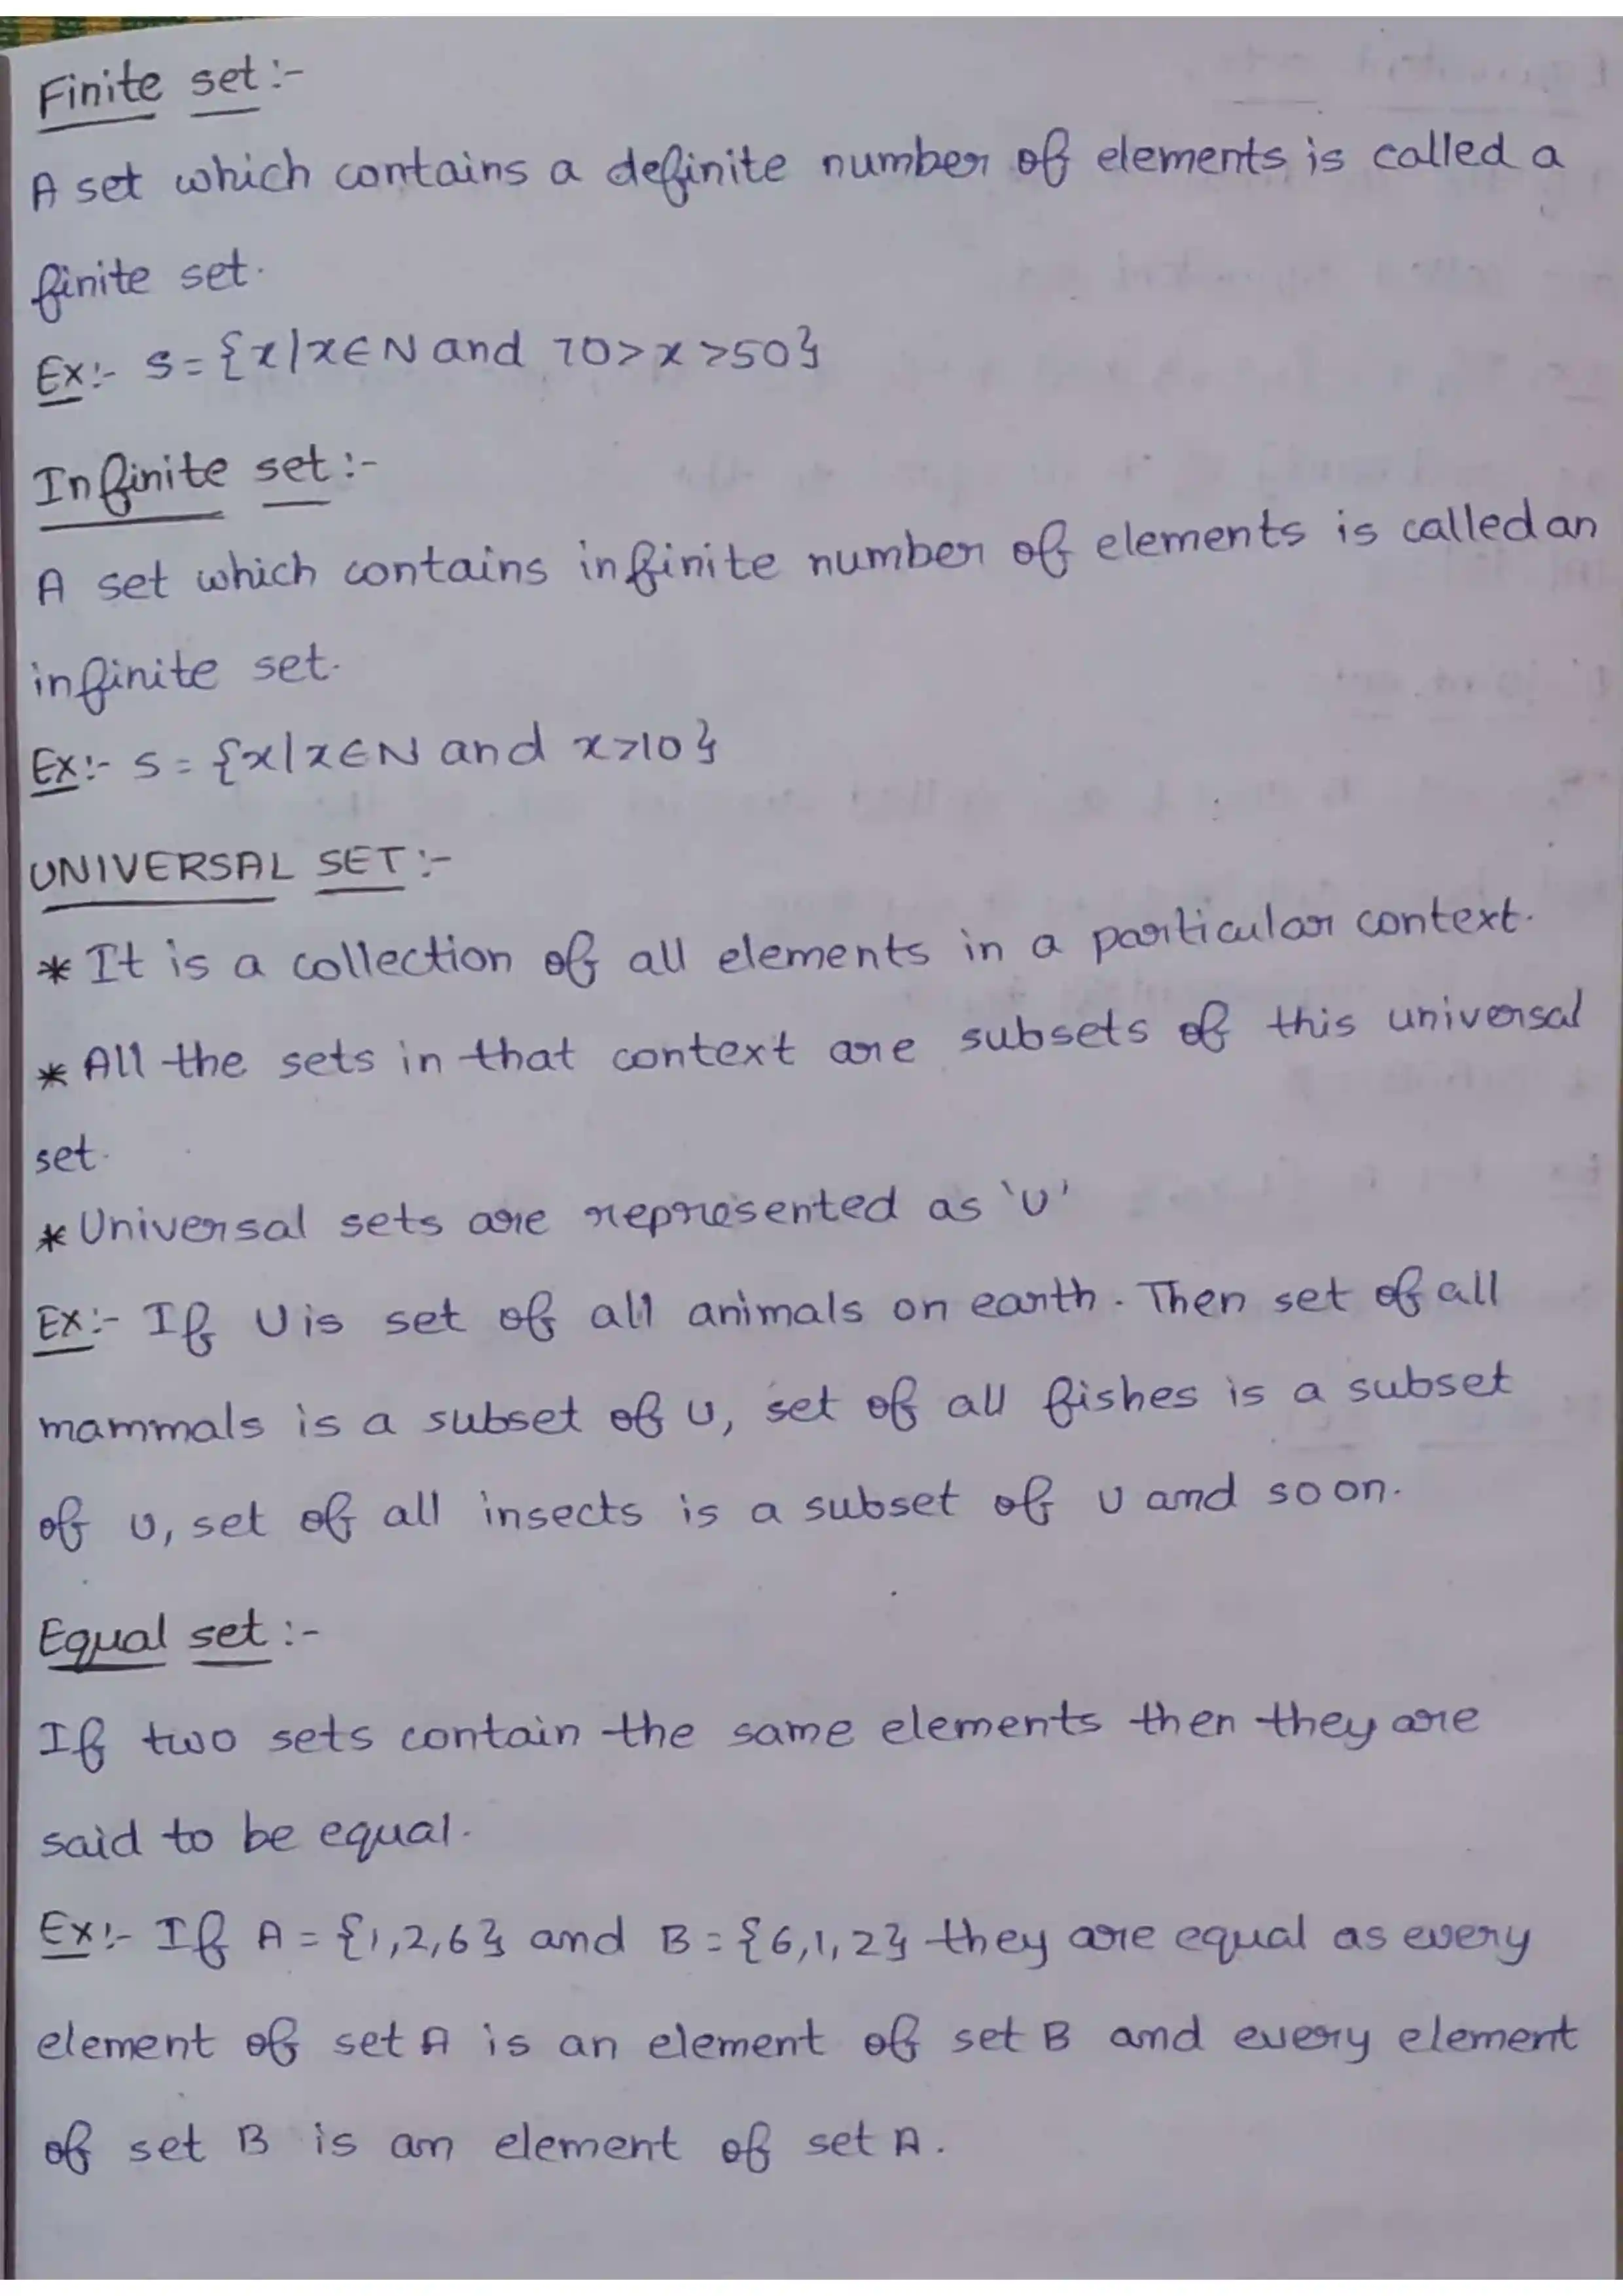 Finite set :-
A set which contains a definite number of elements is called a
finite set.
Ex:- S = {x|x∈N and 70>x>50}
Infinite set :-
A set which contains infinite number of elements is called an
infinite set.
Ex:- S = {x|x∈N and x>10}
UNIVERSAL SET :-
* It is a collection of all elements in a particular context.
* All the sets in that context are subsets of this universal
set.
* Universal sets are represented as 'U'
Ex:- If U is set of all animals on earth. Then set of all
mammals is a subset of U, set of all fishes is a subset
of U, set of all insects is a subset of U and so on.
Equal set :-
If two sets contain the same elements then they are
said to be equal.
Ex:- If A = {1,2,6} and B = {6,1,2} they are equal as every
element of set A is an element of set B and every element
of set B is an element of set A.